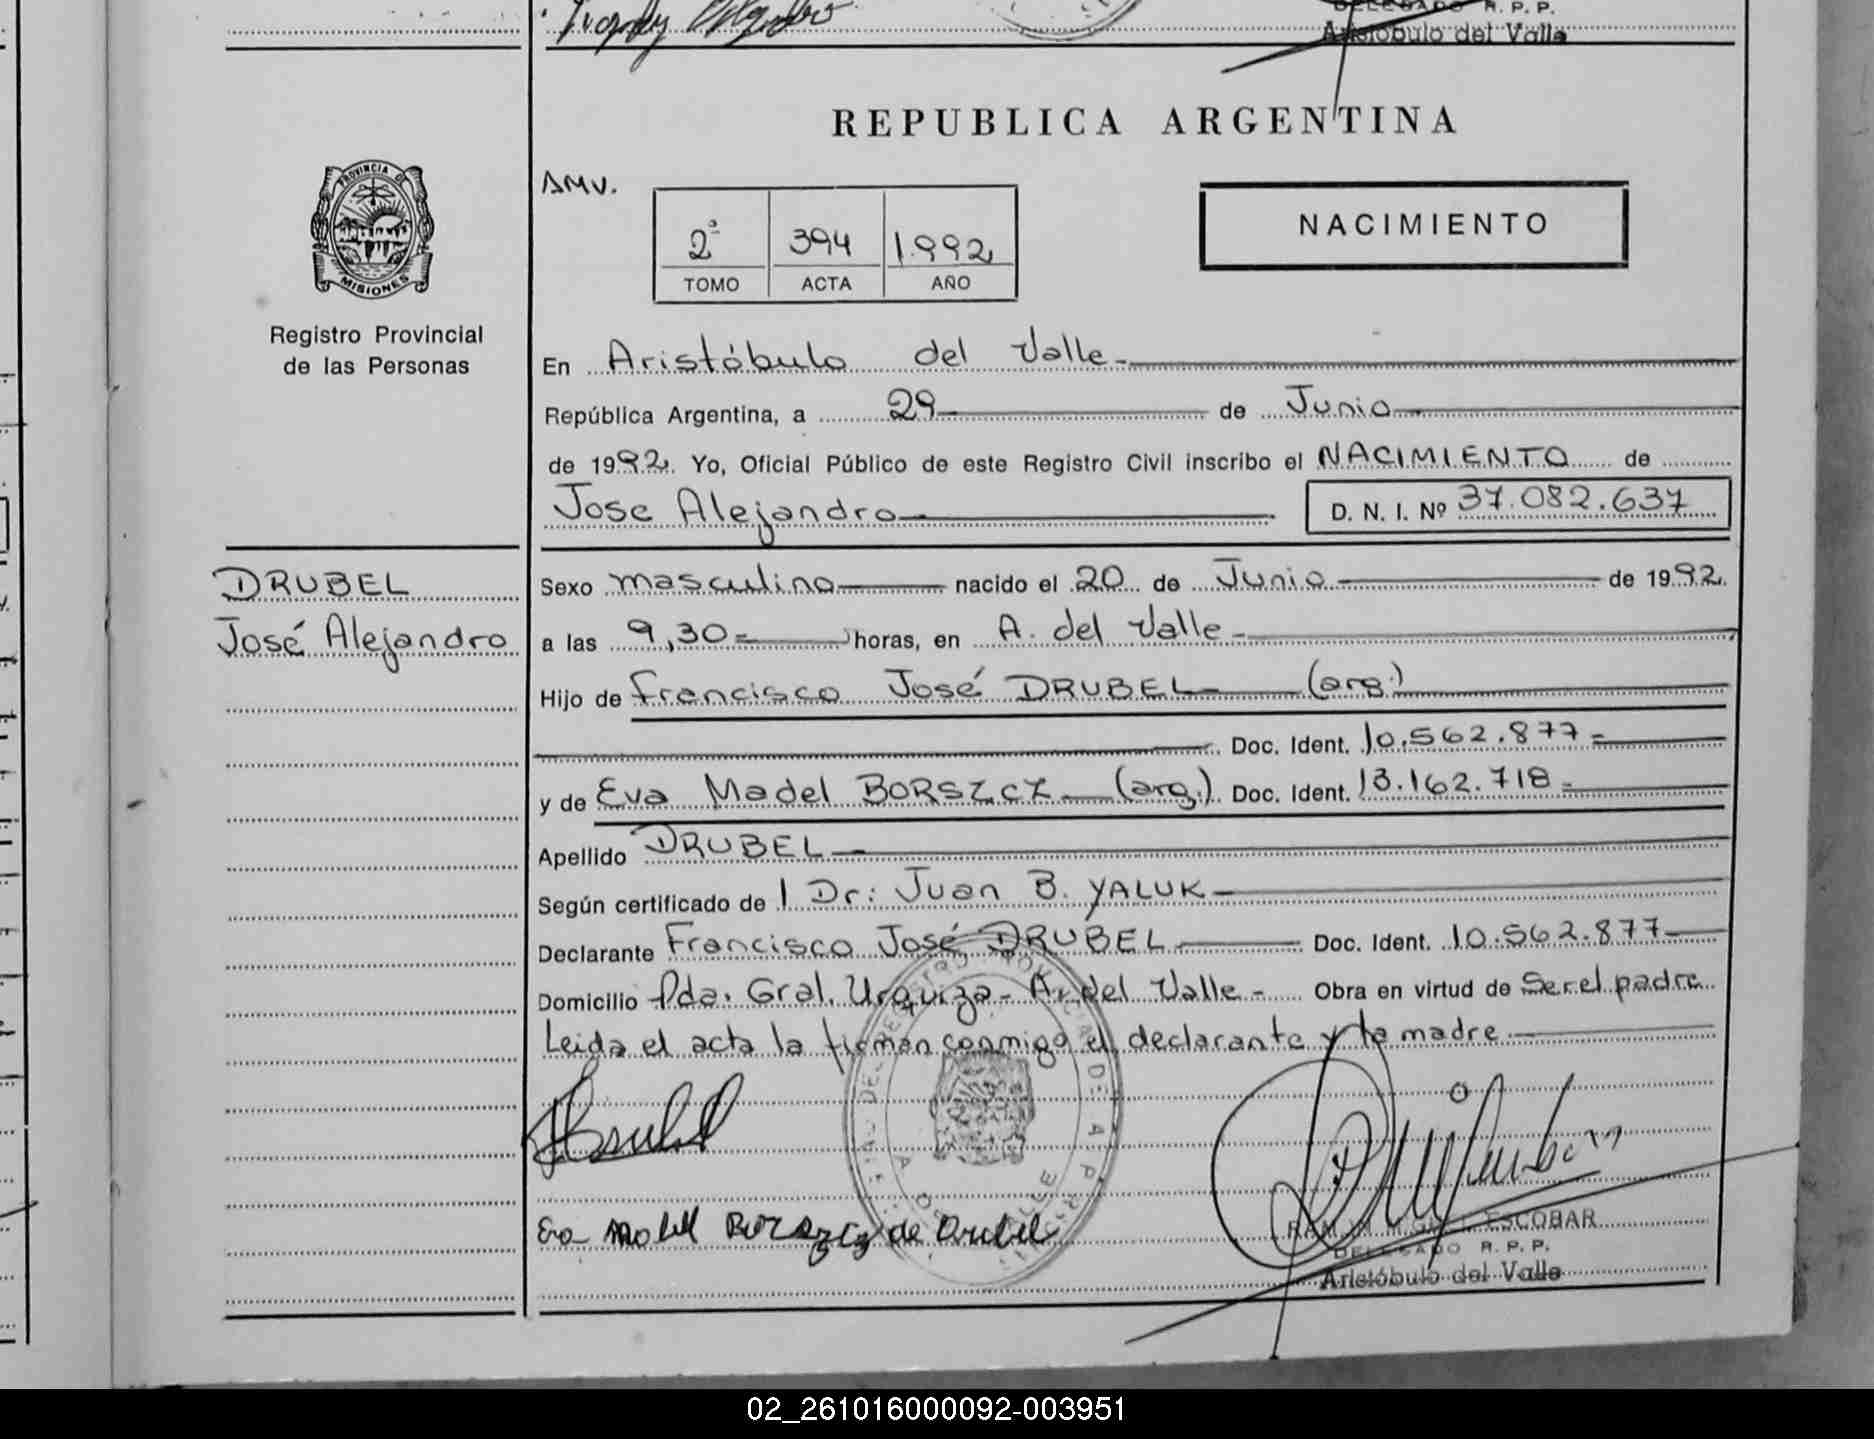 DELEGADO R. P. P.
Aristóbulo del Valle
REPUBLICA ARGENTINA
PROVINCIA DE
MISIONES
Registro Provincial
de las Personas
AMV.
2ª 394 1.992
TOMO ACTA AÑO
NACIMIENTO
En Aristóbulo del Valle
República Argentina, a 29 de Junio
de 1992. Yo, Oficial Público de este Registro Civil inscribo el NACIMIENTO de
Jose Alejandro D. N. I. Nº 37.082.637
DRUBEL
José Alejandro
Sexo masculino nacido el 20 de Junio de 1992.
a las 9,30 horas, en A. del Valle
Hijo de Francisco José DRUBEL (arg.)
Doc. Ident. 10.562.877
y de Eva Madel BORSZCZ (arg.) Doc. Ident. 13.162.718
Apellido DRUBEL
Según certificado de l Dr: Juan B. YALUK
Declarante Francisco José DRUBEL Doc. Ident. 10.562.877
Domicilio Pda. Gral. Urquiza - A. del Valle - Obra en virtud de Ser el padre
Leida el acta la firman conmigo el declarante y la madre
Eva de Drubel
RAMON MIGUEL ESCOBAR
DELEGADO R. P. P.
Aristóbulo del Valle
02_261016000092-003951